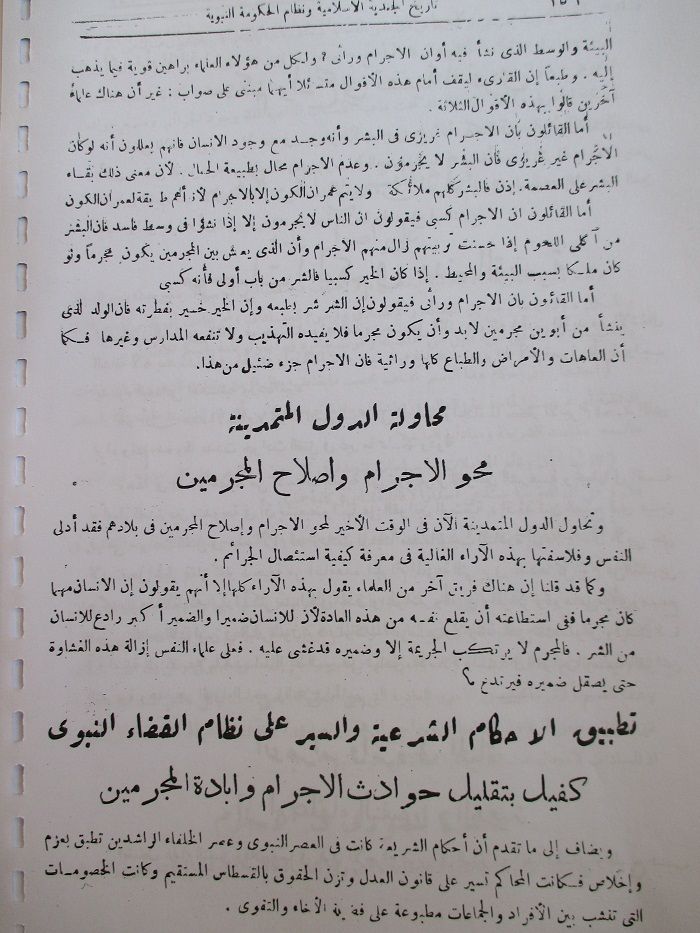 تاريخ الجندية الاسلامية ونظام الحكومة النبوية
البيئة والوسط الذى نشأ فيه أوان الاجرام وراثى ؟ ولكل من هؤلاء العلماء براهين قوية فيما يذهب
إليه . وطبعاً إن القارىء ليقف أمام هذه الأقوال متسائلا أيهما مبنى على صواب : غير أن هناك علماء
آخرين قالوا بهذه الأقوال الثلاثة .
أما القائلون بأن الاجرام غريزى فى البشر وأنه وجد مع وجود الانسان فانهم يعللون أنه لوكان
الاجرام غير غريزى فان البشر لا يجرمون . وعدم الاجرام محال بطبيعة الحال . لأن معنى ذلك بقاء
البشر على العصمة . إذن فالبشر كلهم ملائكة ولا يتم عمران الكون إلا بالاجرام لأنه أهم طريقة لعمران الكون
أما القائلون ان الاجرام كسبى فيقولون ان الناس لا يجرمون إلا إذا نشئوا فى وسط فاسد فان البشر
من آكلى اللحوم إذا حسنت تربيتهم زال منهم الاجرام وأن الذى يعش بين المجرمين يكون مجرماً ولو
كان ملكا بسبب البيئة والمحيط . إذا كان الخير كسبيا فالشر من باب أولى فأنه كسبى
أما القائلون بان الاجرام وراثى فيقولون إن الشر شر بطبعه وإن الخير خير بفطرته فان الولد الذى
ينشأ من أبوين مجرمين لابد وأن يكون مجرما فلا يفيده التهذيب ولا تنفعه المدارس وغيرها فكما
أن العاهات والأمراض والطباع كلها وراثية فان الاجرام جزء ضئيل من هذا.
محاولة الدول المتمدينة
محو الاجرام واصلاح المجرمين
وتحاول الدول المتمدينة الآن فى الوقت الأخير لمحو الاجرام وإصلاح المجرمين فى بلادهم فقد أدلى
النفس وفلاسفتها بهذه الآراء الغالية فى معرفة كيفية استئصال الجرائم .
وكما قد قلنا إن هناك فريق آخر من العلماء يقول بهذه الآراء كلها إلا أنهم يقولون إن الانسان مهما
كان مجرما ففى استطاعته أن يقلع نفسه من هذه العادة لأن للانسان ضميرا والضمير أكبر رادع للانسان
من الشر . فالمجرم لا يرتكب الجريمة إلا وضميره قد غشى عليه . فعلى علماء النفس إزالة هذه الغشاوة
حتى يصقل ضميره فيرتدع ؟
تطبيق الاحكام الشرعية والسير على نظام القضاء النبوى
كفيل بتقليل حوادث الاجرام وابادة المجرمين
ويضاف إلى ما تقدم أن أحكام الشريعة كانت فى العصر النبوى وعصر الخلفاء الراشدين تطبق بعزم
وإخلاص فكانت المحاكم تسير على قانون العدل وتزن الحقوق بالقسطاس المستقيم وكانت الخصومات
التى تنشب بين الأفراد والجماعات مطبوعة على فضيلة الأخاء والتقوى .